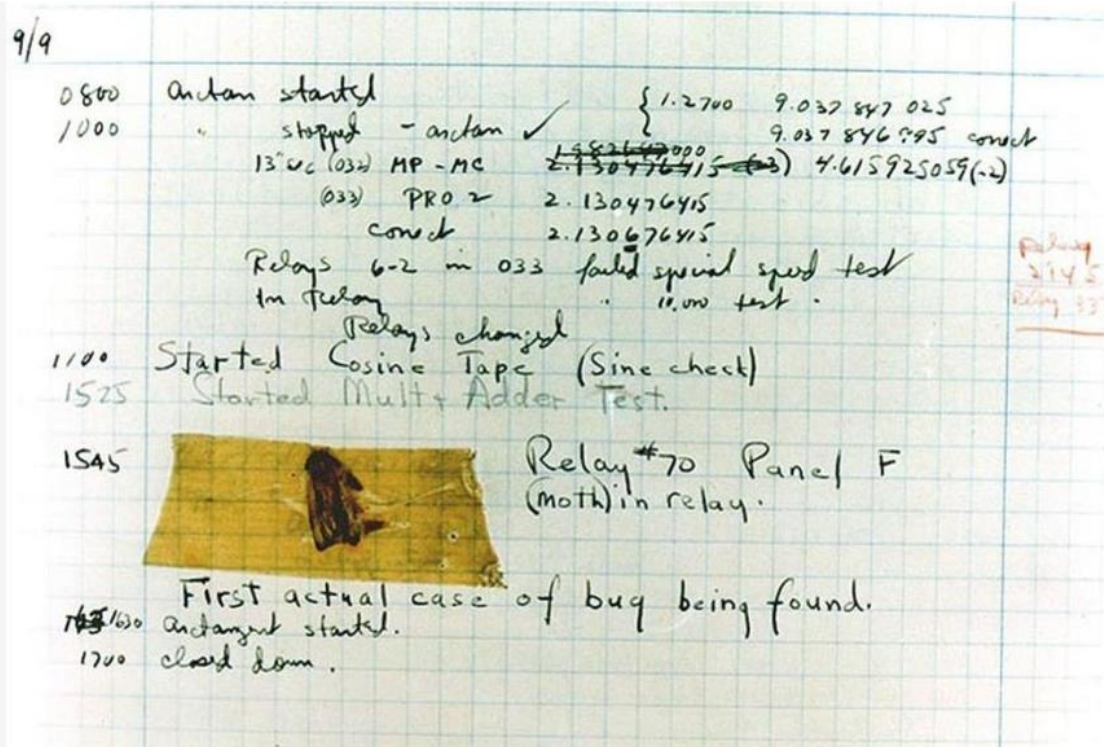 9/9
0800 arctan started { 1.2700 9.037 847 025
1000 " stopped - arctan ✓ { 9.037 846 795 correct
13" uc (032) MP - MC 2.130476415 (-3) 4.615925059(-2)
(033) PRO 2 2.130476415
correct 2.130676415
Relays 6-2 in 033 failed special speed test
In Relay " 10,000 test .
Relays changed
1100 Started Cosine Tape (Sine check)
1525 Started Mult + Adder Test.
1545 Relay #70 Panel F
(moth) in relay.
First actual case of bug being found.
1630 arctangent started.
1700 closed down .
Relay
2145
Relay 33